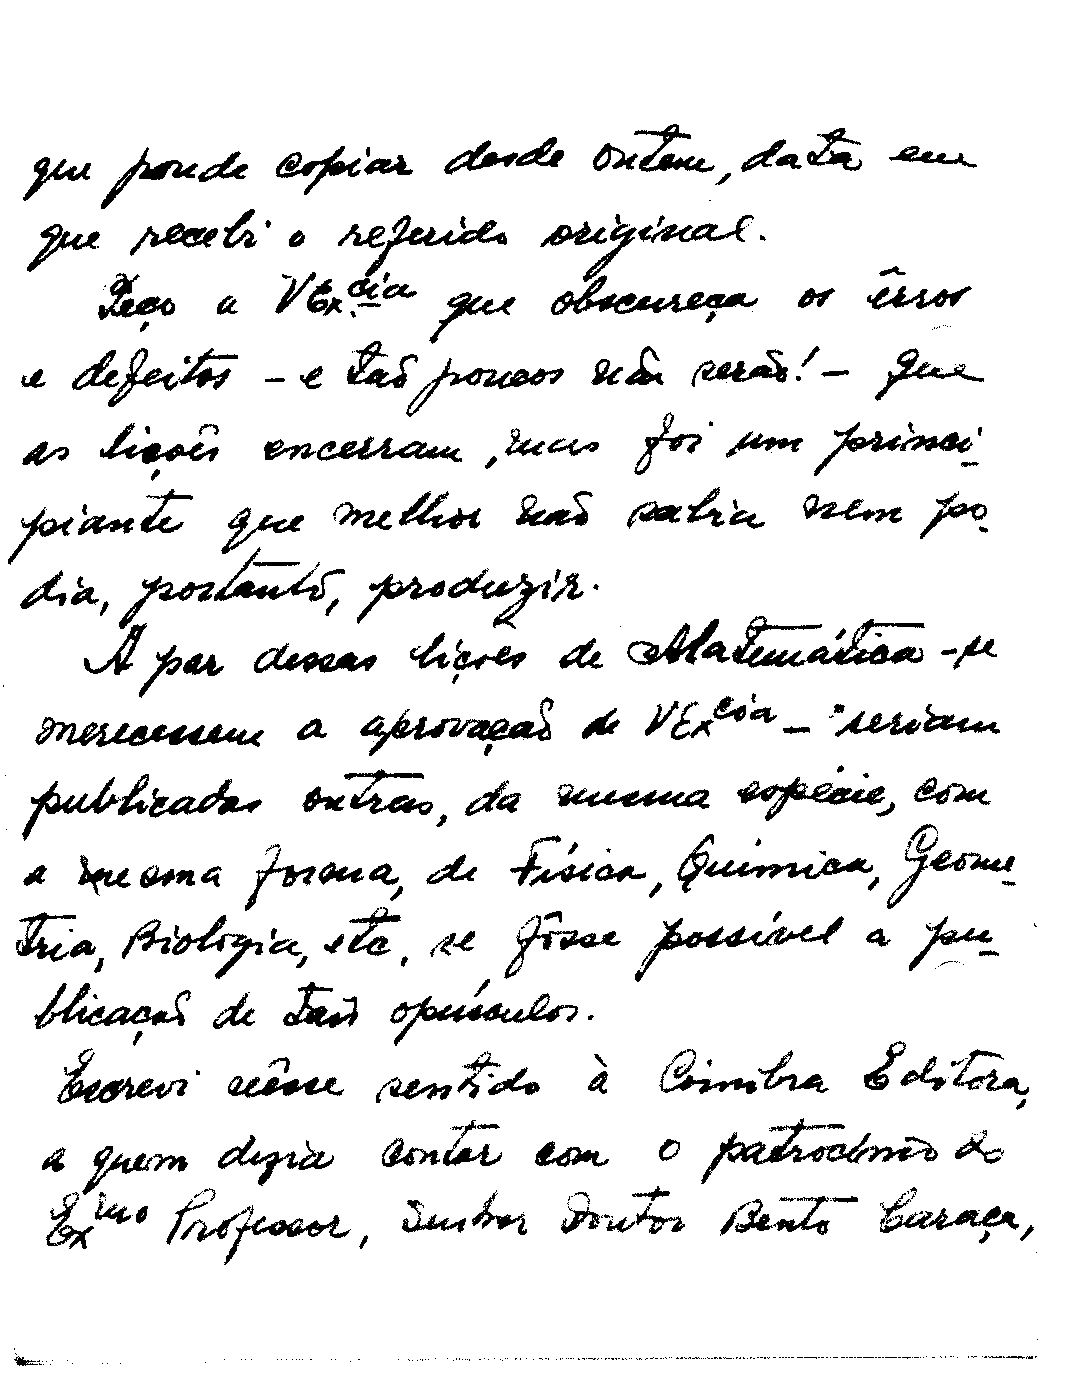 que poude copiar desde ontem, data em
que recebi o referido original.
Peço a VEx.cia que obscureça os êrros
e defeitos - e tão poucos não serão! - que
as lições encerram, mas foi um princi-
piante que melhor não sabia nem po-
dia, portanto, produzir.
A par dessas lições de Matemática - se
merecessem a aprovação de VExcia - seriam
publicadas outras, da mesma espécie, com
a mesma forma, de Física, Química, Geome-
tria, Biologia, etc, se fôsse possível a pu-
blicação de tais opúsculos.
Escrevi nêsse sentido à Coimbra Editora,
a quem dizia contar com o patrocínio do
Exmo Professor, Senhor Doutor Bento Caraça,